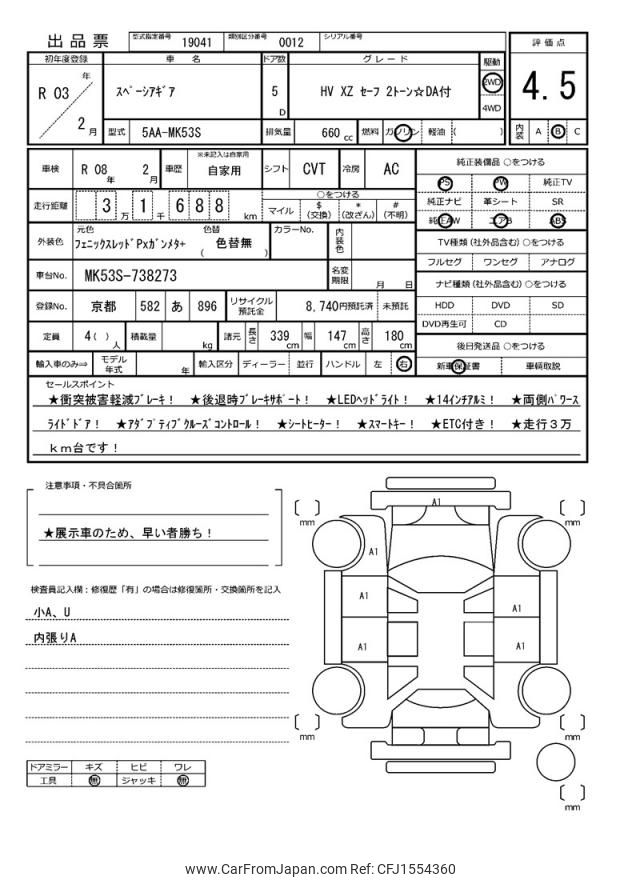 出品票 型式指定番号 19041 類別区分番号 0012 シリアル番号
初年度登録 車名 ドア数 グレード 駆動 評価点
R 03 年 2 月 スペーシアギア 5 D HV XZ セーフ 2トーン☆DA付 2WD 4WD 4.5
型式 5AA-MK53S 排気量 660 cc 燃料 ガソリン 軽油 ( ) 内装 A B C
車検 R 08 年 2 月 車歴 ※未記入は自家用 自家用 シフト CVT 冷房 AC
走行距離 3 万 1 千 6 8 8 km ○をつける マイル $ (交換) * (改ざん) # (不明)
外装色 元色 フェニックスレッドPxガンメタ+ 色替 ( 色替無 ) カラーNo. 内装色
車台No. MK53S-738273 名変期限 月 日
登録No. 京都 582 あ 896 リサイクル預託金 8,740円預託済 未預託
定員 4( ) 人 積載量 kg 諸元 長さ 339 cm 幅 147 cm 高さ 180 cm
輸入車のみ⇒ モデル年式 年 輸入区分 ディーラー 並行 ハンドル 左 右
純正装備品 ○をつける
PS PW 純正TV
純正ナビ 革シート SR
純正AW エアB ABS
TV種類 (社外品含む) ○をつける
フルセグ ワンセグ アナログ
ナビ種類 (社外品含む) ○をつける
HDD DVD SD
DVD再生可 CD
後日発送品 ○をつける
新車保証書 車輌取説
セールスポイント
★衝突被害軽減ブレーキ! ★後退時ブレーキサポート! ★LEDヘッドライト! ★14インチアルミ! ★両側パワース
ライドドア! ★アダプティブクルーズコントロール! ★シートヒーター! ★スマートキー! ★ETC付き! ★走行3万
km台です!
注意事項・不具合箇所
★展示車のため、早い者勝ち!
検査員記入欄:修復歴「有」の場合は修復箇所・交換箇所を記入
小A、U
内張りA
ドアミラー キズ ヒビ ワレ
工具 無 ジャッキ 無
A1
mm mm
A1
A1 A1
A1 A1
mm mm
mm
www.CarFromJapan.com Ref: CFJ1554360